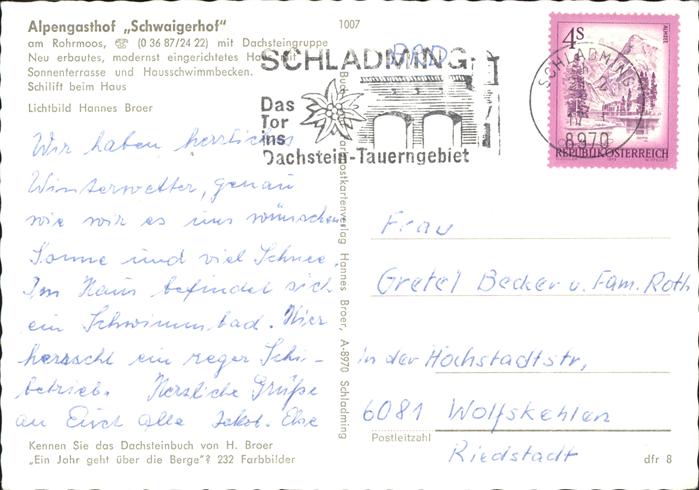 Alpengasthof „Schwaigerhof"
am Rohrmoos, ☏ (0 36 87/24 22) mit Dachsteingruppe
Neu erbautes, modernst eingerichtetes Haus mit
Sonnenterrasse und Hausschwimmbecken.
Schilift beim Haus
Lichtbild Hannes Broer
1007
BRD
SCHLADMING
Das
Tor
ins
Dachstein-Tauerngebiet
SCHLADMING
8970
4S
ALMSEE
REPUBLIK ÖSTERREICH
Wir haben herrliches
Winterwetter, genau
wie wir es uns wünschen
Sonne und viel Schnee.
Im Haus befindet sich
ein Schwimmbad. Hier
herrscht ein reger Schi-
betrieb. Herzliche Grüße
an Euch alle Jakob. Else
Kennen Sie das Dachsteinbuch von H. Broer
„Ein Jahr geht über die Berge"? 232 Farbbilder
Hannes Broer, A-8970 Schladming
Frau
Gretel Becker u. Fam. Roth
in der Hochstadtstr,
6081 Wolfskehlen
Postleitzahl
Riedstadt
dfr 8